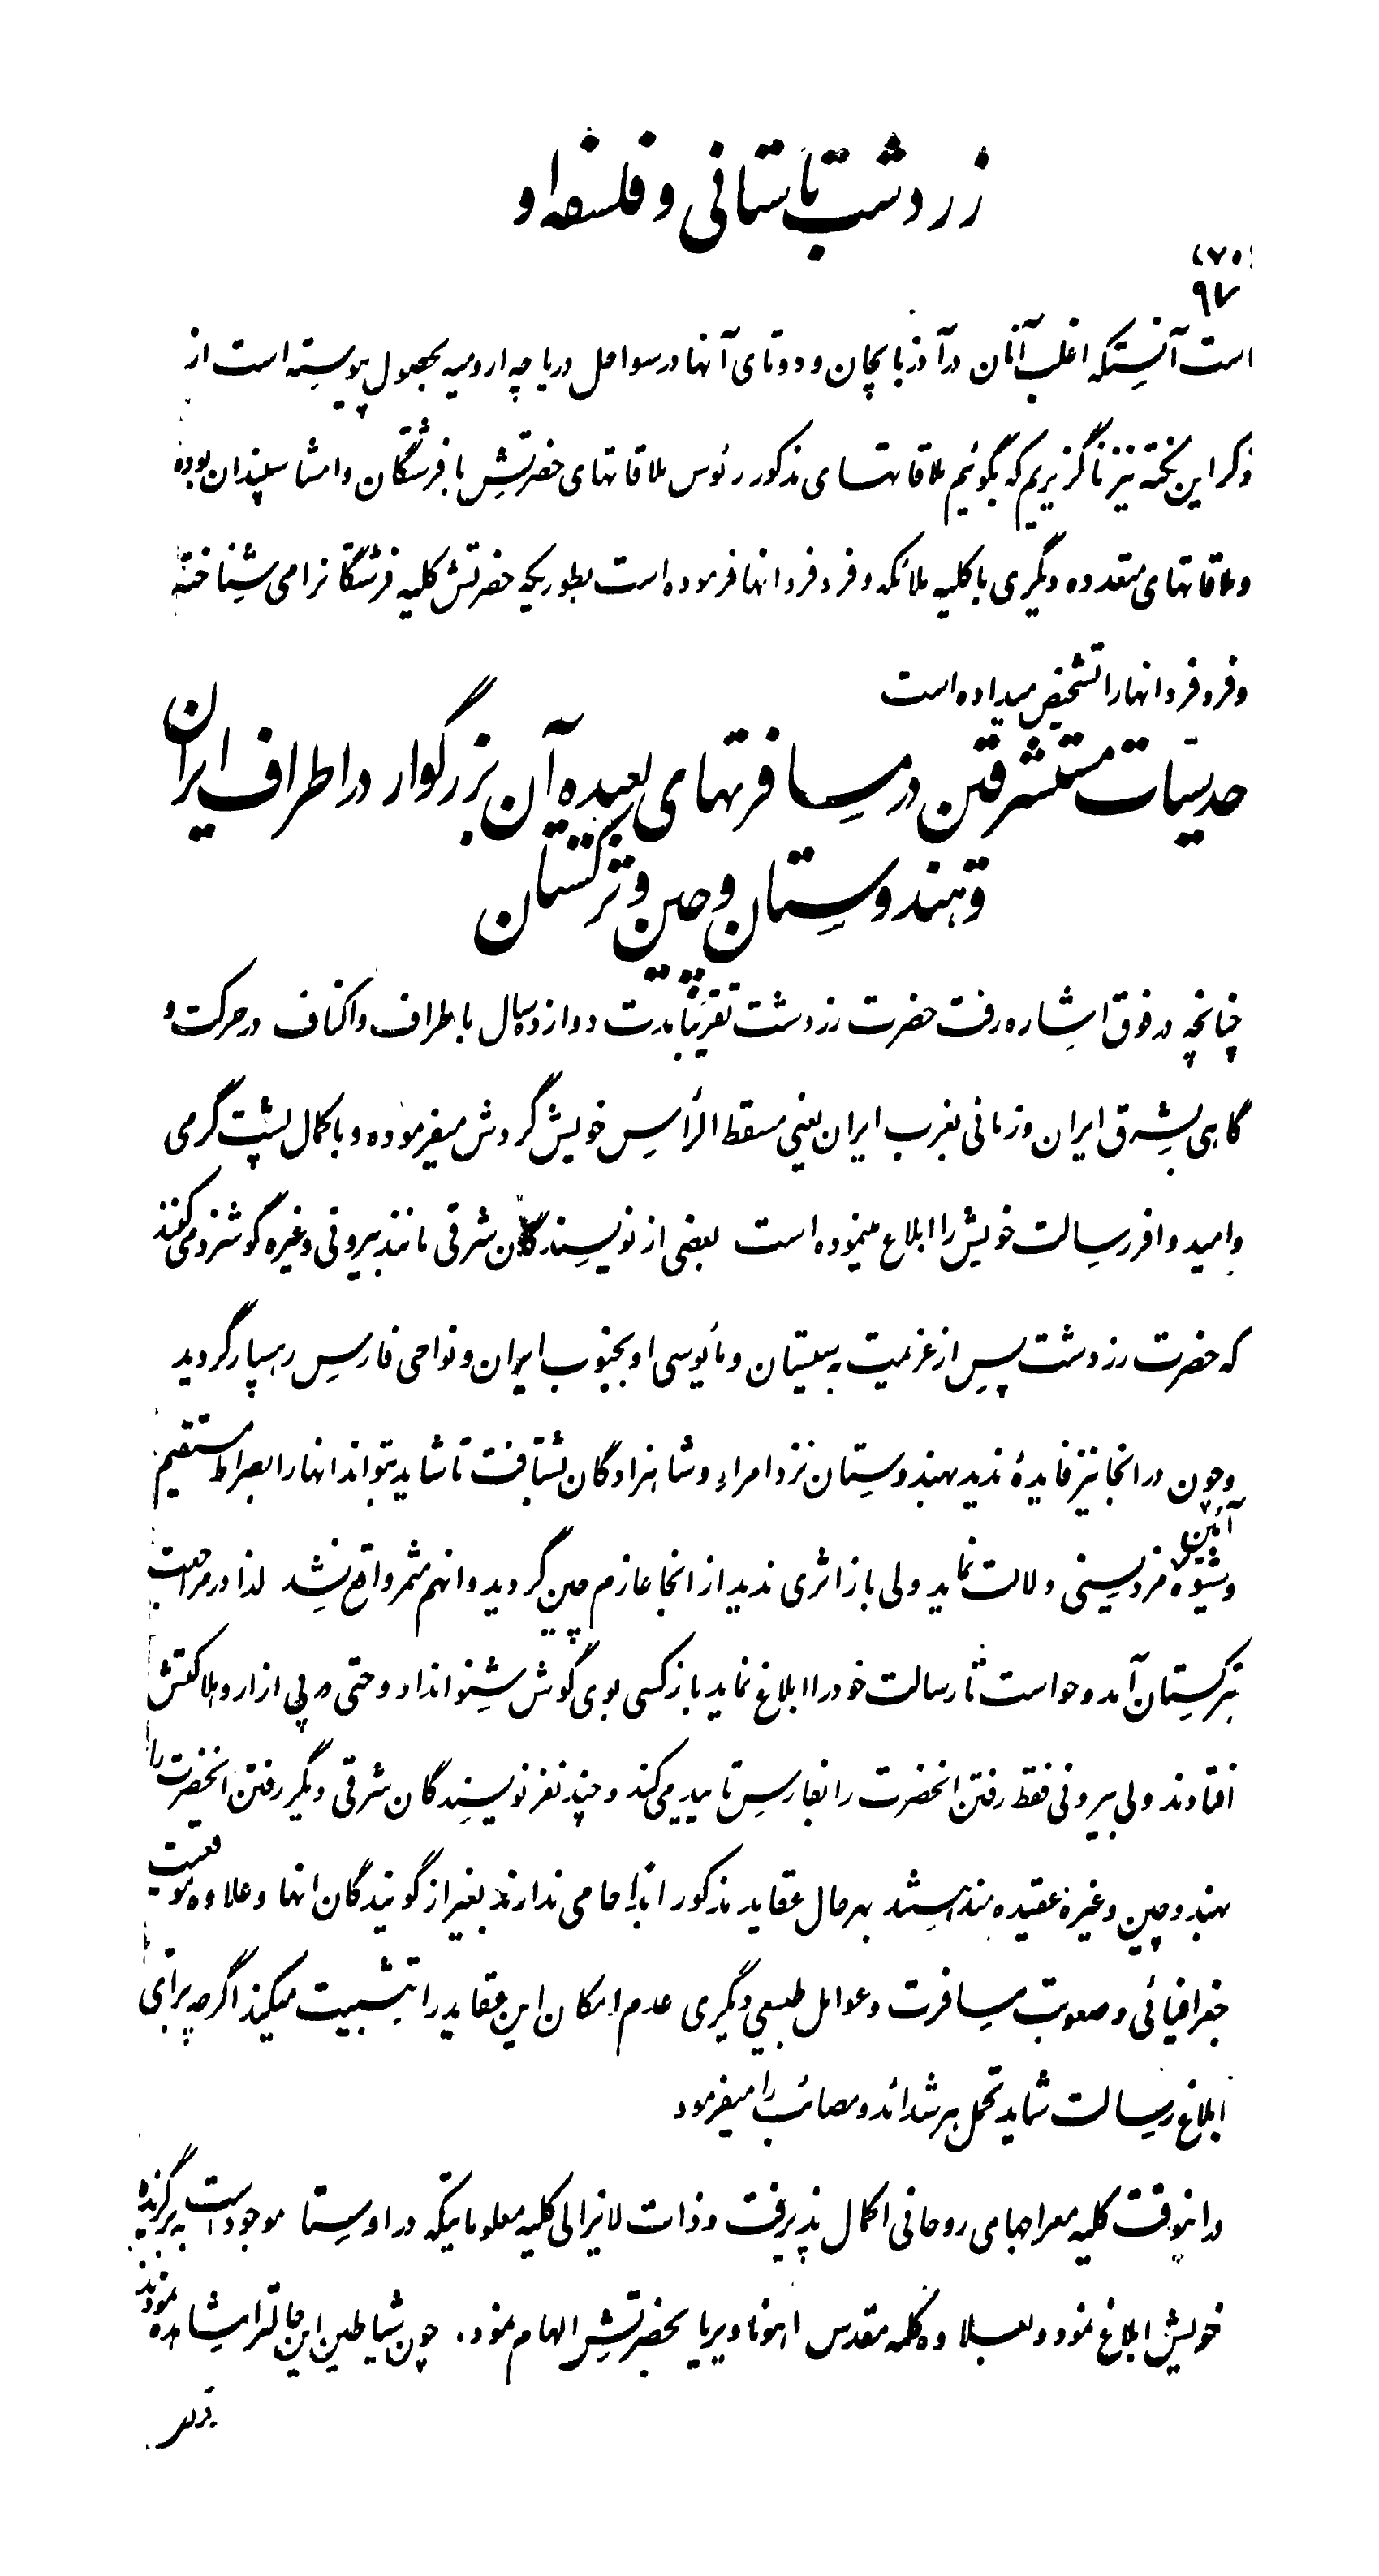 زردشت باستانی و فلسفه او
(۷۵)
۹۷
است آنستکه اغلب آنان در آذربایجان و دوتای آنها در سواحل دریاچه ارومیه بحصول پیوسته است از
ذکر این نکته نیز ناگزیریم که بگوئیم ملاقاتهای مذکور رئوس ملاقاتهای حضرتش با فرشتگان و امشاسپندان بوده
و ملاقاتهای متعدده دیگری با کلیه ملائکه و فرد فرد انها فرموده است بطوریکه حضرتش کلیه فرشتگانرا می شناخته
و فرد فرد انها را تشخیص میداده است
حدسیّات مستشرقین در مسافرتهای بعیده آن بزرگوار در اطراف ایران
و هندوستان و چین و ترکستان
چنانچه در فوق اشاره رفت حضرت زردشت تقریباً بمدت دوازده سال باطراف و اکناف در حرکت و
گاهی بشرق ایران و زمانی بغرب ایران یعنی مسقط الرأس خویش گردش میفرموده و با کمال پشت گرمی
و امید وافر رسالت خویش را ابلاغ مینموده است بعضی از نویسندگان شرقی مانند بیرونی و غیره گوشزد می کنند
که حضرت زردشت پس از عزیمت به سیستان و مأیوسی او بجنوب ایران و نواحی فارس رهسپار گردید
و چون در انجا نیز فایدهٔ ندید بهندوستان نزد امراء و شاهزادگان بشتافت تا شاید بتواند انها را بصراط مستقیم
آئین
و شیوه مزدیسنی دلالت نماید ولی باز اثری ندید از انجا عازم چین گردید و انهم مثمر واقع نشد لذا در مراجعت
بترکستان آمد و خواست تا رسالت خود را ابلاغ نماید باز کسی بوی گوش شنوا نداد و حتی در پی ازار و هلاکتش
افتادند ولی بیرونی فقط رفتن انحضرت را بفارس تایید می کند و چند نفر نویسندگان شرقی دیگر رفتن انحضرت را
بهند و چین و غیره عقیده مند هستند بهر حال عقاید مذکور ابداً حامی ندارند بغیر از گویندگان انها و علاوه موقعیت
جغرافیائی و صعوبت مسافرت و عوامل طبیعی دیگری عدم امکان این عقاید را تثبیت میکند اگر چه برای
ابلاغ رسالت شاید تحمل هر شدائد و مصائب را میفرمود
در انموقت کلیه معراجهای روحانی اکمال پذیرفت و ذات لایزالی کلیه معلوماتیکه در اوستا موجود است به برگزیده
خویش ابلاغ نمود و بعلاوه کلمه مقدس اهوناویریا بحضرتش الهام نمود. چون شیاطین این حالترا مشاهده نمودند